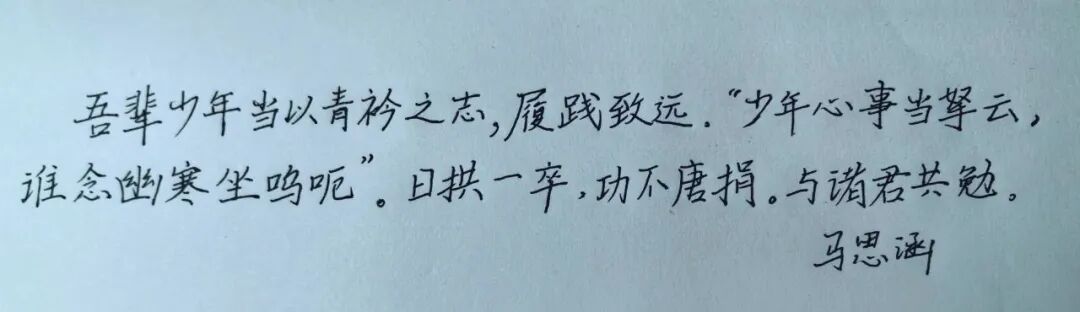 吾辈少年当以青衿之志,履践致远.“少年心事当拏云,
谁念幽寒坐呜呃”。日拱一卒,功不唐捐。与诸君共勉。
马思涵